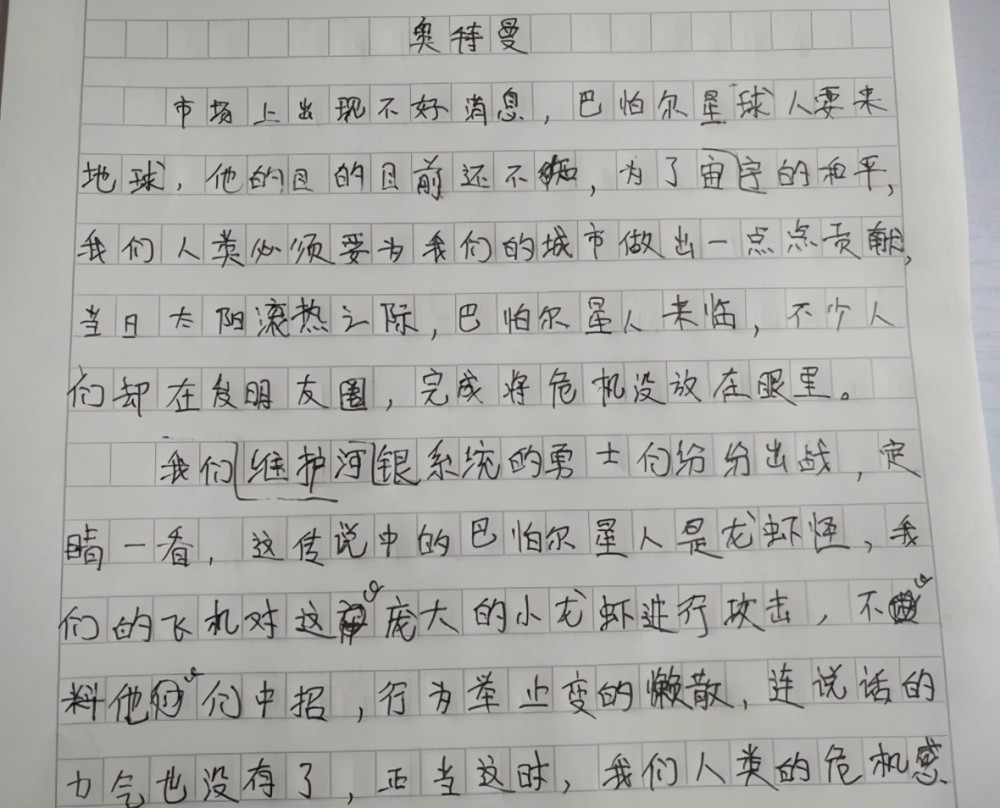 奥特曼
市场上出现不好消息，巴怕尔星球人要来
地球，他的目的目前还不知，为了宙宇的和平，
我们人类必须要为我们的城市做出一点点贡献，
当日太阳滚热之际，巴怕尔星人来临，不少人
们却在发朋友圈，完成将危机没放在眼里。
我们维护河银系统的勇士们纷纷出战，定
睛一看，这传说中的巴怕尔星人是龙虾怪，我
们的飞机对这庞大的小龙虾进行攻击，不
料他们中招，行为举止变的懒散，连说话的
力气也没有了，正当这时，我们人类的危机感